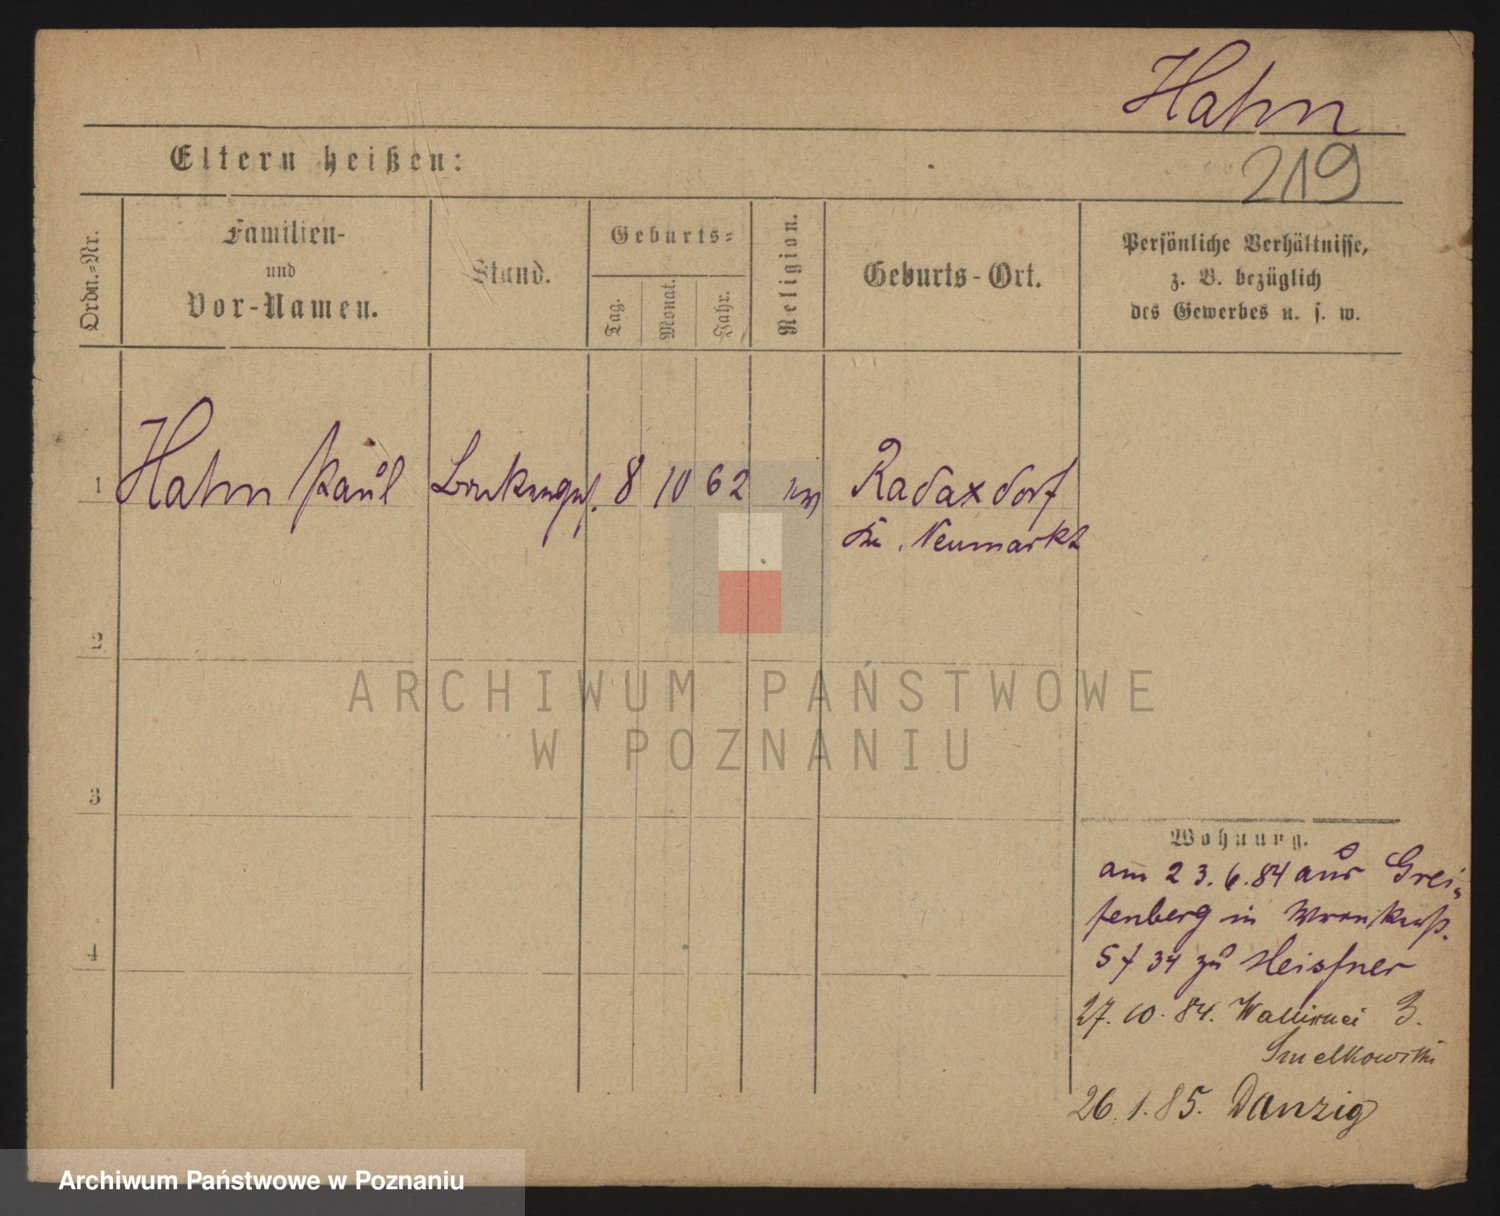 Hahn
Eltern heißen:
219
Ordn.=Nr.
Familien-
und
Vor-Namen.
Stand.
Geburts=
Tag.
Monat.
Jahr.
Religion.
Geburts-Ort.
Persönliche Verhältnisse,
z. B. bezüglich
des Gewerbes u. s. w.
1 Hahn Paul 8 10 62 Radaxdorf
Neumarkt
2
3
4
Wohnung.
am 23.6.84 aus Grei=
fenberg in
34 zu Meisner
27.10.84. Wallischei 3.
Smelkowski
26.1.85. Danzig
ARCHIWUM PAŃSTWOWE
W POZNANIU
Archiwum Państwowe w Poznaniu